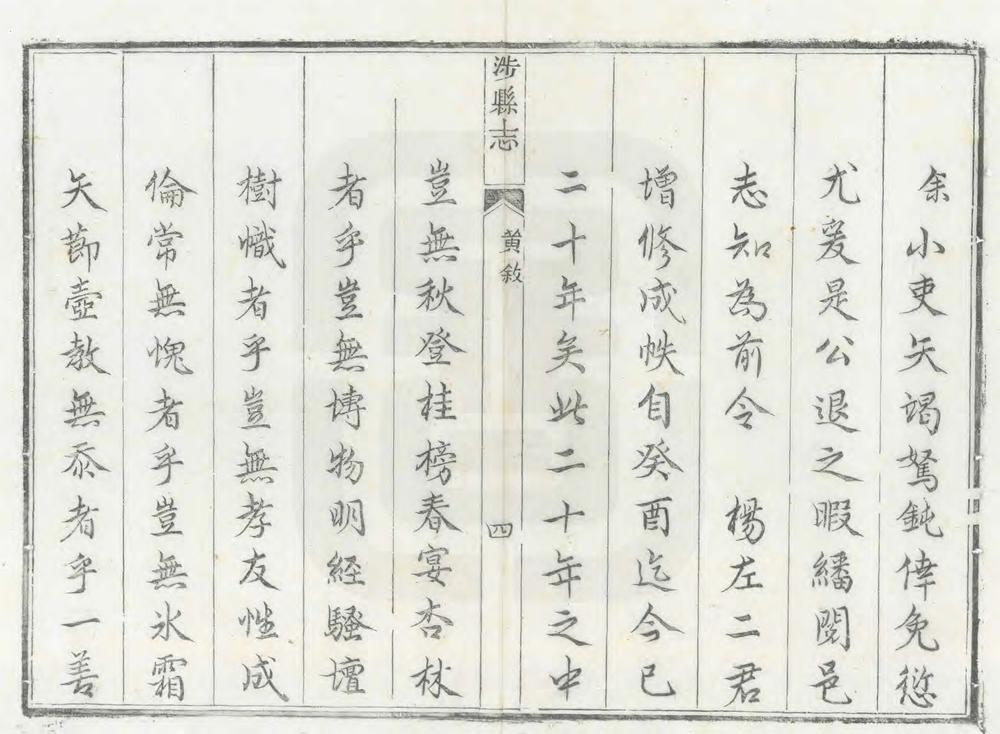 余小吏矢竭駑鈍倖免愆
尤爰是公退之暇繙閱邑
志知為前令　楊左二君
增修成帙自癸酉迄今已
二十年矣此二十年之中
涉縣志
黄敘
四
豈無秋登桂榜春宴杏林
者乎豈無博物明經騷壇
樹幟者乎豈無孝友性成
倫常無愧者乎豈無氷霜
矢節壼教無忝者乎一善